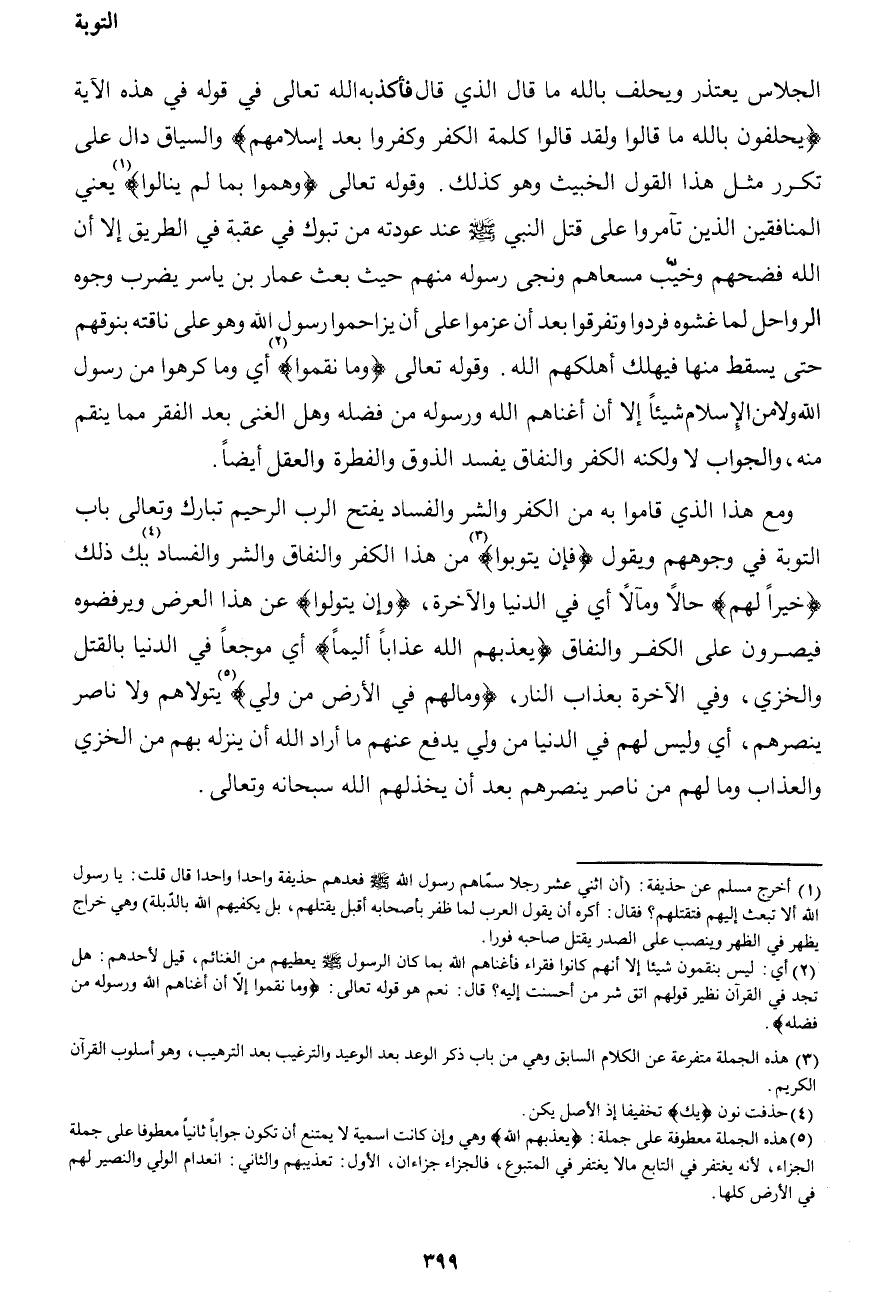 التوبة
الجلاس يعتذر ويحلف بالله ما قال الذي قال فأكذبه الله تعالى في قوله في هذه الآية
﴿يحلفون بالله ما قالوا ولقد قالوا كلمة الكفر وكفروا بعد إسلامهم﴾ والسياق دال على
تكرر مثل هذا القول الخبيث وهو كذلك. وقوله تعالى ﴿وهموا بما لم ينالوا﴾(١) يعني
المنافقين الذين تآمروا على قتل النبي ﷺ عند عودته من تبوك في عقبة في الطريق إلا أن
الله فضحهم وخيّب مسعاهم ونجى رسوله منهم حيث بعث عمار بن ياسر يضرب وجوه
الرواحل لما غشوه فردوا وتفرقوا بعد أن عزموا على أن يزاحموا رسول الله وهو على ناقته بنوقهم
حتى يسقط منها فيهلك أهلكهم الله. وقوله تعالى ﴿وما نقموا﴾(٢) أي وما كرهوا من رسول
الله ولا من الإسلام شيئاً إلا أن أغناهم الله ورسوله من فضله وهل الغنى بعد الفقر مما ينقم
منه، والجواب لا ولكنه الكفر والنفاق يفسد الذوق والفطرة والعقل أيضاً.
ومع هذا الذي قاموا به من الكفر والشر والفساد يفتح الرب الرحيم تبارك وتعالى باب
التوبة في وجوههم ويقول ﴿فإن يتوبوا﴾(٣) من هذا الكفر والنفاق والشر والفساد يك(٤) ذلك
﴿خيراً لهم﴾ حالاً ومآلاً أي في الدنيا والآخرة، ﴿وإن يتولوا﴾ عن هذا العرض ويرفضوه
فيصرون على الكفر والنفاق ﴿يعذبهم الله عذاباً أليماً﴾ أي موجعاً في الدنيا بالقتل
والخزي، وفي الآخرة بعذاب النار، ﴿ومالهم في الأرض من ولي﴾(٥) يتولاهم ولا ناصر
ينصرهم، أي وليس لهم في الدنيا من ولي يدفع عنهم ما أراد الله أن ينزله بهم من الخزي
والعذاب وما لهم من ناصر ينصرهم بعد أن يخذلهم الله سبحانه وتعالى.
(١) أخرج مسلم عن حذيفة: (أن اثني عشر رجلا سمّاهم رسول الله ﷺ فعدهم حذيفة واحدا واحدا قال قلت: يا رسول
الله ألا تبعث إليهم فتقتلهم؟ فقال: أكره أن يقول العرب لما ظفر بأصحابه أقبل يقتلهم، بل يكفيهم الله بالدّبلة) وهي خراج
يظهر في الظهر وينصب على الصدر يقتل صاحبه فورا.
(٢) أي: ليس بنقمون شيئا إلا أنهم كانوا فقراء فأغناهم الله بما كان الرسول ﷺ يعطيهم من الغنائم، قيل لأحدهم: هل
تجد في القرآن نظير قولهم اتق شر من أحسنت إليه؟ قال: نعم هو قوله تعالى: ﴿وما نقموا إلّا أن أغناهم الله ورسوله من
فضله﴾.
(٣) هذه الجملة متفرعة عن الكلام السابق وهي من باب ذكر الوعد بعد الوعيد والترغيب بعد الترهيب، وهو أسلوب القرآن
الكريم.
(٤) حذفت نون ﴿يك﴾ تخفيفا إذ الأصل يكن.
(٥) هذه الجملة معطوفة على جملة: ﴿يعذبهم الله﴾ وهي وإن كانت اسمية لا يمتنع أن تكون جواباً ثانياً معطوفا على جملة
الجزاء، لأنه يغتفر في التابع مالا يغتفر في المتبوع، فالجزاء جزاءان، الأول: تعذيبهم والثاني: انعدام الولي والنصير لهم
في الأرض كلها.
٣٩٩